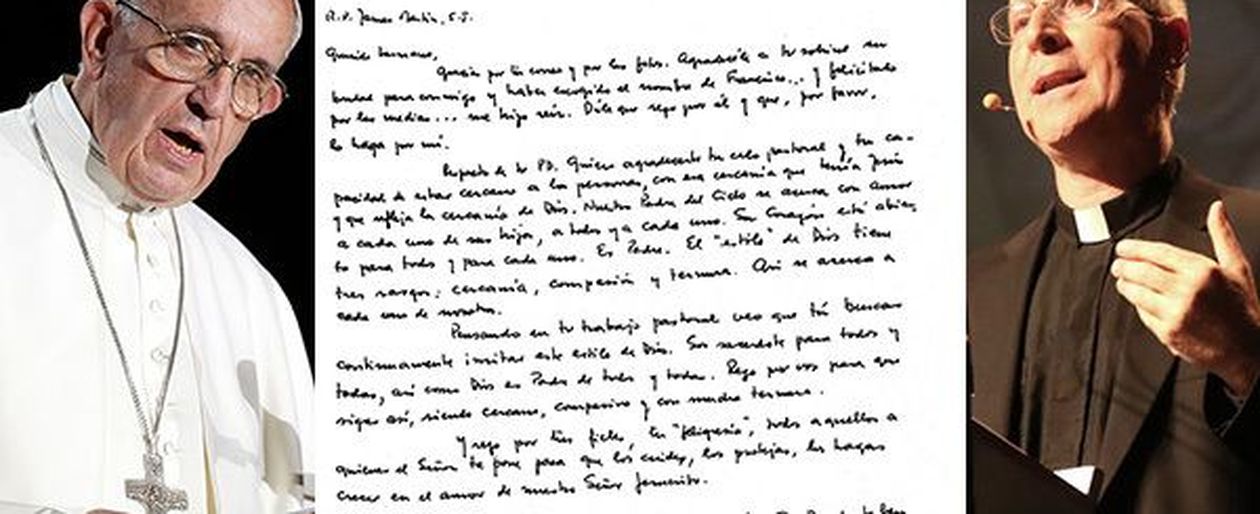 R.P. James Martin, S.J.
Querido hermano,
Gracias por tu correo y por las fotos. Agradecele a tu sobrino su
bondad para conmigo y haber escogido el nombre de Francisco... y felicitalo
por las medias... me hizo reír. Dile que rezo por él y que, por favor,
lo haga por mí.
Respecto de tu PD. Quiero agradecerte tu celo pastoral y tu ca-
pacidad de estar cercano a las personas, con esa cercanía que tenía Jesús
y que refleja la cercanía de Dios. Nuestro Padre del Cielo se acerca con amor
a cada uno de sus hijos, a todos y a cada uno. Su Corazón está abier-
to para todos y para cada uno. Es Padre. El "estilo" de Dios tiene
tres rasgos: cercanía, compasión y ternura. Así se acerca a
cada uno de nosotros.
Pensando en tu trabajo pastoral veo que tú buscas
continuamente imitar este estilo de Dios. Sos sacerdote para todos y
todas, así como Dios es Padre de todos y todas. Rezo por vos para que
sigas así, siendo cercano, compasivo y con mucha ternura.
Y rezo por tus fieles, tu "feligresía", todos aquellos a
quienes el Señor te pone para que los cuides, los protejas, los hagas
crecer en el amor de nuestro Señor Jesucristo.